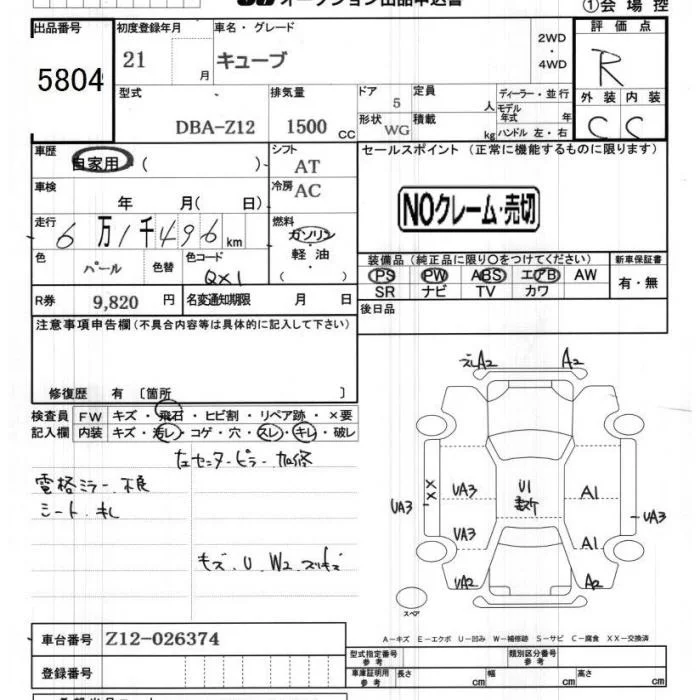 オークション出品申込書
①会場控
出品番号
5804
初度登録年月
21 月
車名・グレード
キューブ
2WD
・
4WD
評価点
R
外装 内装
C C
型式
DBA-Z12
排気量
1500 CC
ドア
5
定員
人
形状
WG
積載
kg
ディーラー・並行
モデル
年式 年
ハンドル 左・右
車歴
自家用・( )
シフト
AT
車検
年 月( 日)
冷房
AC
走行
6万1千496km
燃料
ガソリン
・
軽油
( )
色
パール
色替
色コード
QX1
R券
9,820 円
名変通知期限 月 日
セールスポイント(正常に機能するものに限ります)
NOクレーム・売切
装備品(純正品に限り〇をつけてください)
PS PW ABS エアB AW
SR ナビ TV カワ
新車保証書
有・無
後日品
注意事項申告欄(不具合内容等は具体的に記入して下さい)
修復歴 有〔箇所 〕
検査員
記入欄
FW キズ・飛石・ヒビ割・リペア跡・×要
内装 キズ・汚レ・コゲ・穴・スレ・キレ・破レ
左センターピラー加修
電格ミラー不良
シートキレ
キズ.U.W2.
A2
A2
XX
UA3
UA3
U1
A1
UA3
UA3
A1
UA2
A2
スペア
A-キズ E-エクボ U-凹み W-補修跡 S-サビ C-腐食 XX-交換済
車台番号
Z12-026374
登録番号
型式指定番号
参考
類別区分番号
参考
車庫証明用
参考
長さ cm
幅 cm
高さ cm